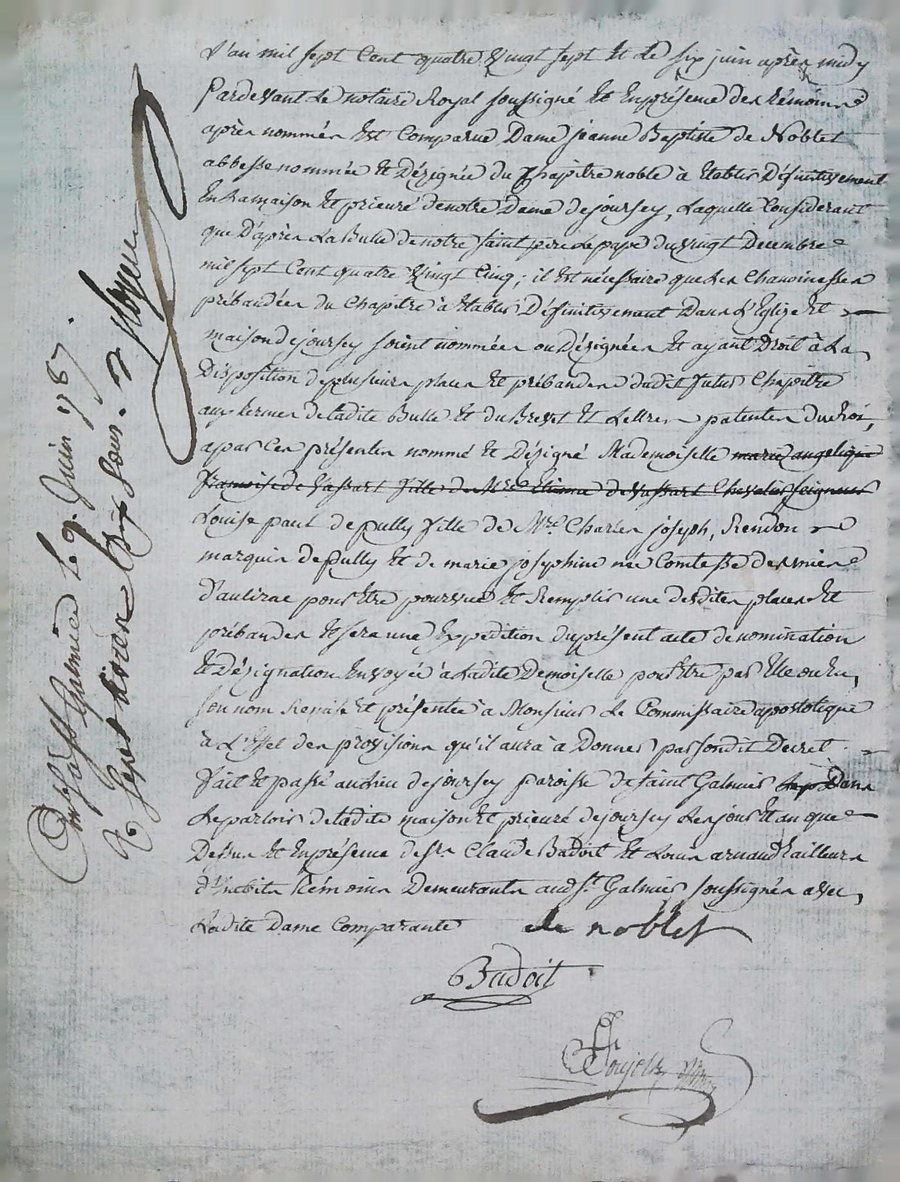 L'an mil sept Cent quatre Vingt sept Et Le six juin après midy
Pardevant Le notaire Royal soussigné Et En présence des témoins
après nommés Est Comparue Dame jeanne Baptiste de Noblet
abbesse nommée Et Dézignée du Chapitre noble à Etablir Définitivement
En La maison Et prieuré de notre Dame de jourcey, Laquelle Considerant
que D'après La Bulle de notre saint pere Le pape du vingt Decembre
mil sept Cent quatre Vingt Cinq; il Est nécessaire que Les Chanoinesses
prébandées du Chapitre à Etablir Définitivement Dans L'Eglize Et
maison de joursey soient nommées ou Dézignées Et ayant Droit à La
Disposition de plusieurs places Et prébandes dudit futur Chapitre
aux termes de ladite Bulle Et du Brevet Et Lettres patentes du Roi,
a par Ces présentes nommé Et Dézigné Mademoiselle marie angelique
françoise de Vassart fille de Mre Etienne de Vassart Chevalier, seigneur
Louise paul de pully fille de Mre Charles joseph, Rendon
marquis de pully Et de marie josephine née Comtesse
D'aulizac pour Etre pourvue Et Remplir une desdites places Et
prébandes Et sera une Expédition du présent acte de nomination
Et Dézignation Envoyée à Ladite Demoiselle pour Etre par Elle ou En
son nom Remise Et présentée à Monsieur Le Commissaire apostolique
à L'Effet des provisions qu'il aura à Donner par sondit Decret
fait Et passé au Lieu de joursey paroisse de saint Galmier Dans
Le parloir de ladite maison Et prieuré de joursey Les jour Et an que
Dessus Et En présence de sr. Claude Badoit Et Louis arnaud tailleurs
D'habits témoins Demeurants audit St. Galmier soussignés avec
Ladite Dame Comparante de noblet
Badoit
à St Galmier Le 9. Juin 1787.